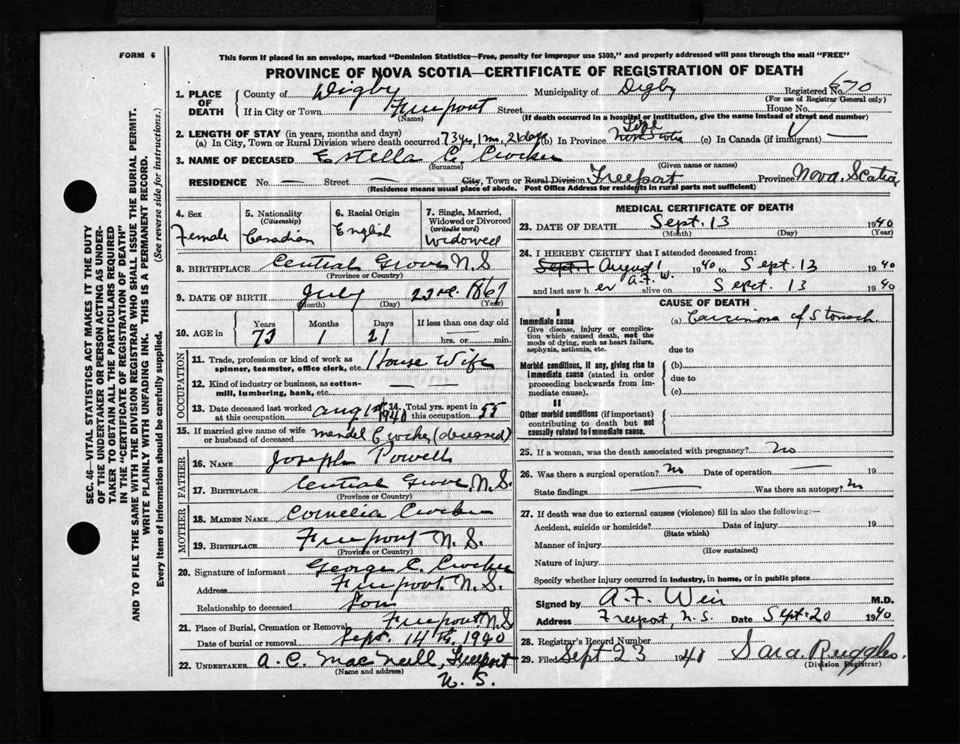 FORM 6
This form if placed in an envelope, marked "Dominion Statistics—Free, penalty for improper use $300," and properly addressed will pass through the mail "FREE"
PROVINCE OF NOVA SCOTIA—CERTIFICATE OF REGISTRATION OF DEATH
SEC. 46—VITAL STATISTICS ACT MAKES IT THE DUTY
OF THE UNDERTAKER OR PERSON ACTING AS UNDER-
TAKER TO OBTAIN ALL THE PARTICULARS REQUIRED
IN THE "CERTIFICATE OF REGISTRATION OF DEATH"
AND TO FILE THE SAME WITH THE DIVISION REGISTRAR WHO SHALL ISSUE THE BURIAL PERMIT.
WRITE PLAINLY WITH UNFADING INK. THIS IS A PERMANENT RECORD.
Every item of information should be carefully supplied. (See reverse side for instructions.)
1. PLACE OF DEATH County of Digby Municipality of Digby Registered No. 670
(For use of Registrar General only)
If in City or Town Freeport Street House No.
(Name) (If death occurred in a hospital or institution, give the name instead of street and number)
2. LENGTH OF STAY (in years, months and days)
(a) In City, Town or Rural Division where death occurred 73 yrs, 1 m, 21 days (b) In Province Life Nova Scotia (c) In Canada (if immigrant) —
3. NAME OF DECEASED Estella C. Crocker
(Surname) (Given name or names)
RESIDENCE No. — Street — City, Town or Rural Division Freeport Province Nova Scotia
(Residence means usual place of abode. Post Office Address for residents in rural parts not sufficient)
4. Sex Female
5. Nationality (Citizenship) Canadian
6. Racial Origin English
7. Single, Married, Widowed or Divorced (write the word) Widowed
8. BIRTHPLACE Central Grove N.S
(Province or Country)
9. DATE OF BIRTH July 23rd. 1867
(Month) (Day) (Year)
10. AGE in Years 73 Months 1 Days 21 If less than one day old hrs. or min.
OCCUPATION
11. Trade, profession or kind of work as spinner, teamster, office clerk, etc. House Wife
12. Kind of industry or business, as cotton-mill, lumbering, bank, etc. — —
13. Date deceased last worked at this occupation Aug 1st 1940 14. Total yrs. spent in this occupation 55
15. If married give name of wife or husband of deceased Mendel Crocker (deceased)
FATHER
16. NAME Joseph Powell
17. BIRTHPLACE Central Grove, N.S.
(Province or Country)
MOTHER
18. MAIDEN NAME Cornelia Crocker
19. BIRTHPLACE Freeport N.S.
(Province or Country)
20. Signature of informant George E. Crocker
Address Freeport N.S.
Relationship to deceased Son
21. Place of Burial, Cremation or Removal Freeport N.S
Date of burial or removal Sept. 14th, 1940
22. UNDERTAKER A. C. MacNeill, Freeport
(Name and address) N.S.
MEDICAL CERTIFICATE OF DEATH
23. DATE OF DEATH Sept. 13 1940
(Month) (Day) (Year)
24. I HEREBY CERTIFY that I attended deceased from:
Sept. 1 August 1 1940 to Sept. 13 1940
A.F.W.
and last saw her alive on Sept. 13 1940
CAUSE OF DEATH
I
Immediate cause (a) Carcinoma of Stomach
Give disease, injury or complication which caused death, not the mode of dying, such as heart failure, asphyxia, asthenia, etc. due to
Morbid conditions, if any, giving rise to immediate cause (stated in order proceeding backwards from immediate cause). (b)
due to
(c)
II
Other morbid conditions (if important) contributing to death but not causally related to immediate cause.
25. If a woman, was the death associated with pregnancy? No
26. Was there a surgical operation? No Date of operation — 19
State findings — Was there an autopsy? No
27. If death was due to external causes (violence) fill in also the following:—
Accident, suicide or homicide? Date of injury 19
(State which)
Manner of injury
(How sustained)
Nature of injury
Specify whether injury occurred in industry, in home, or in public place
Signed by A. F. Weir M.D.
Address Freeport, N.S. Date Sept. 20 1940
28. Registrar's Record Number
29. Filed Sept 23 1940 Sara Ruggles.
(Division Registrar)